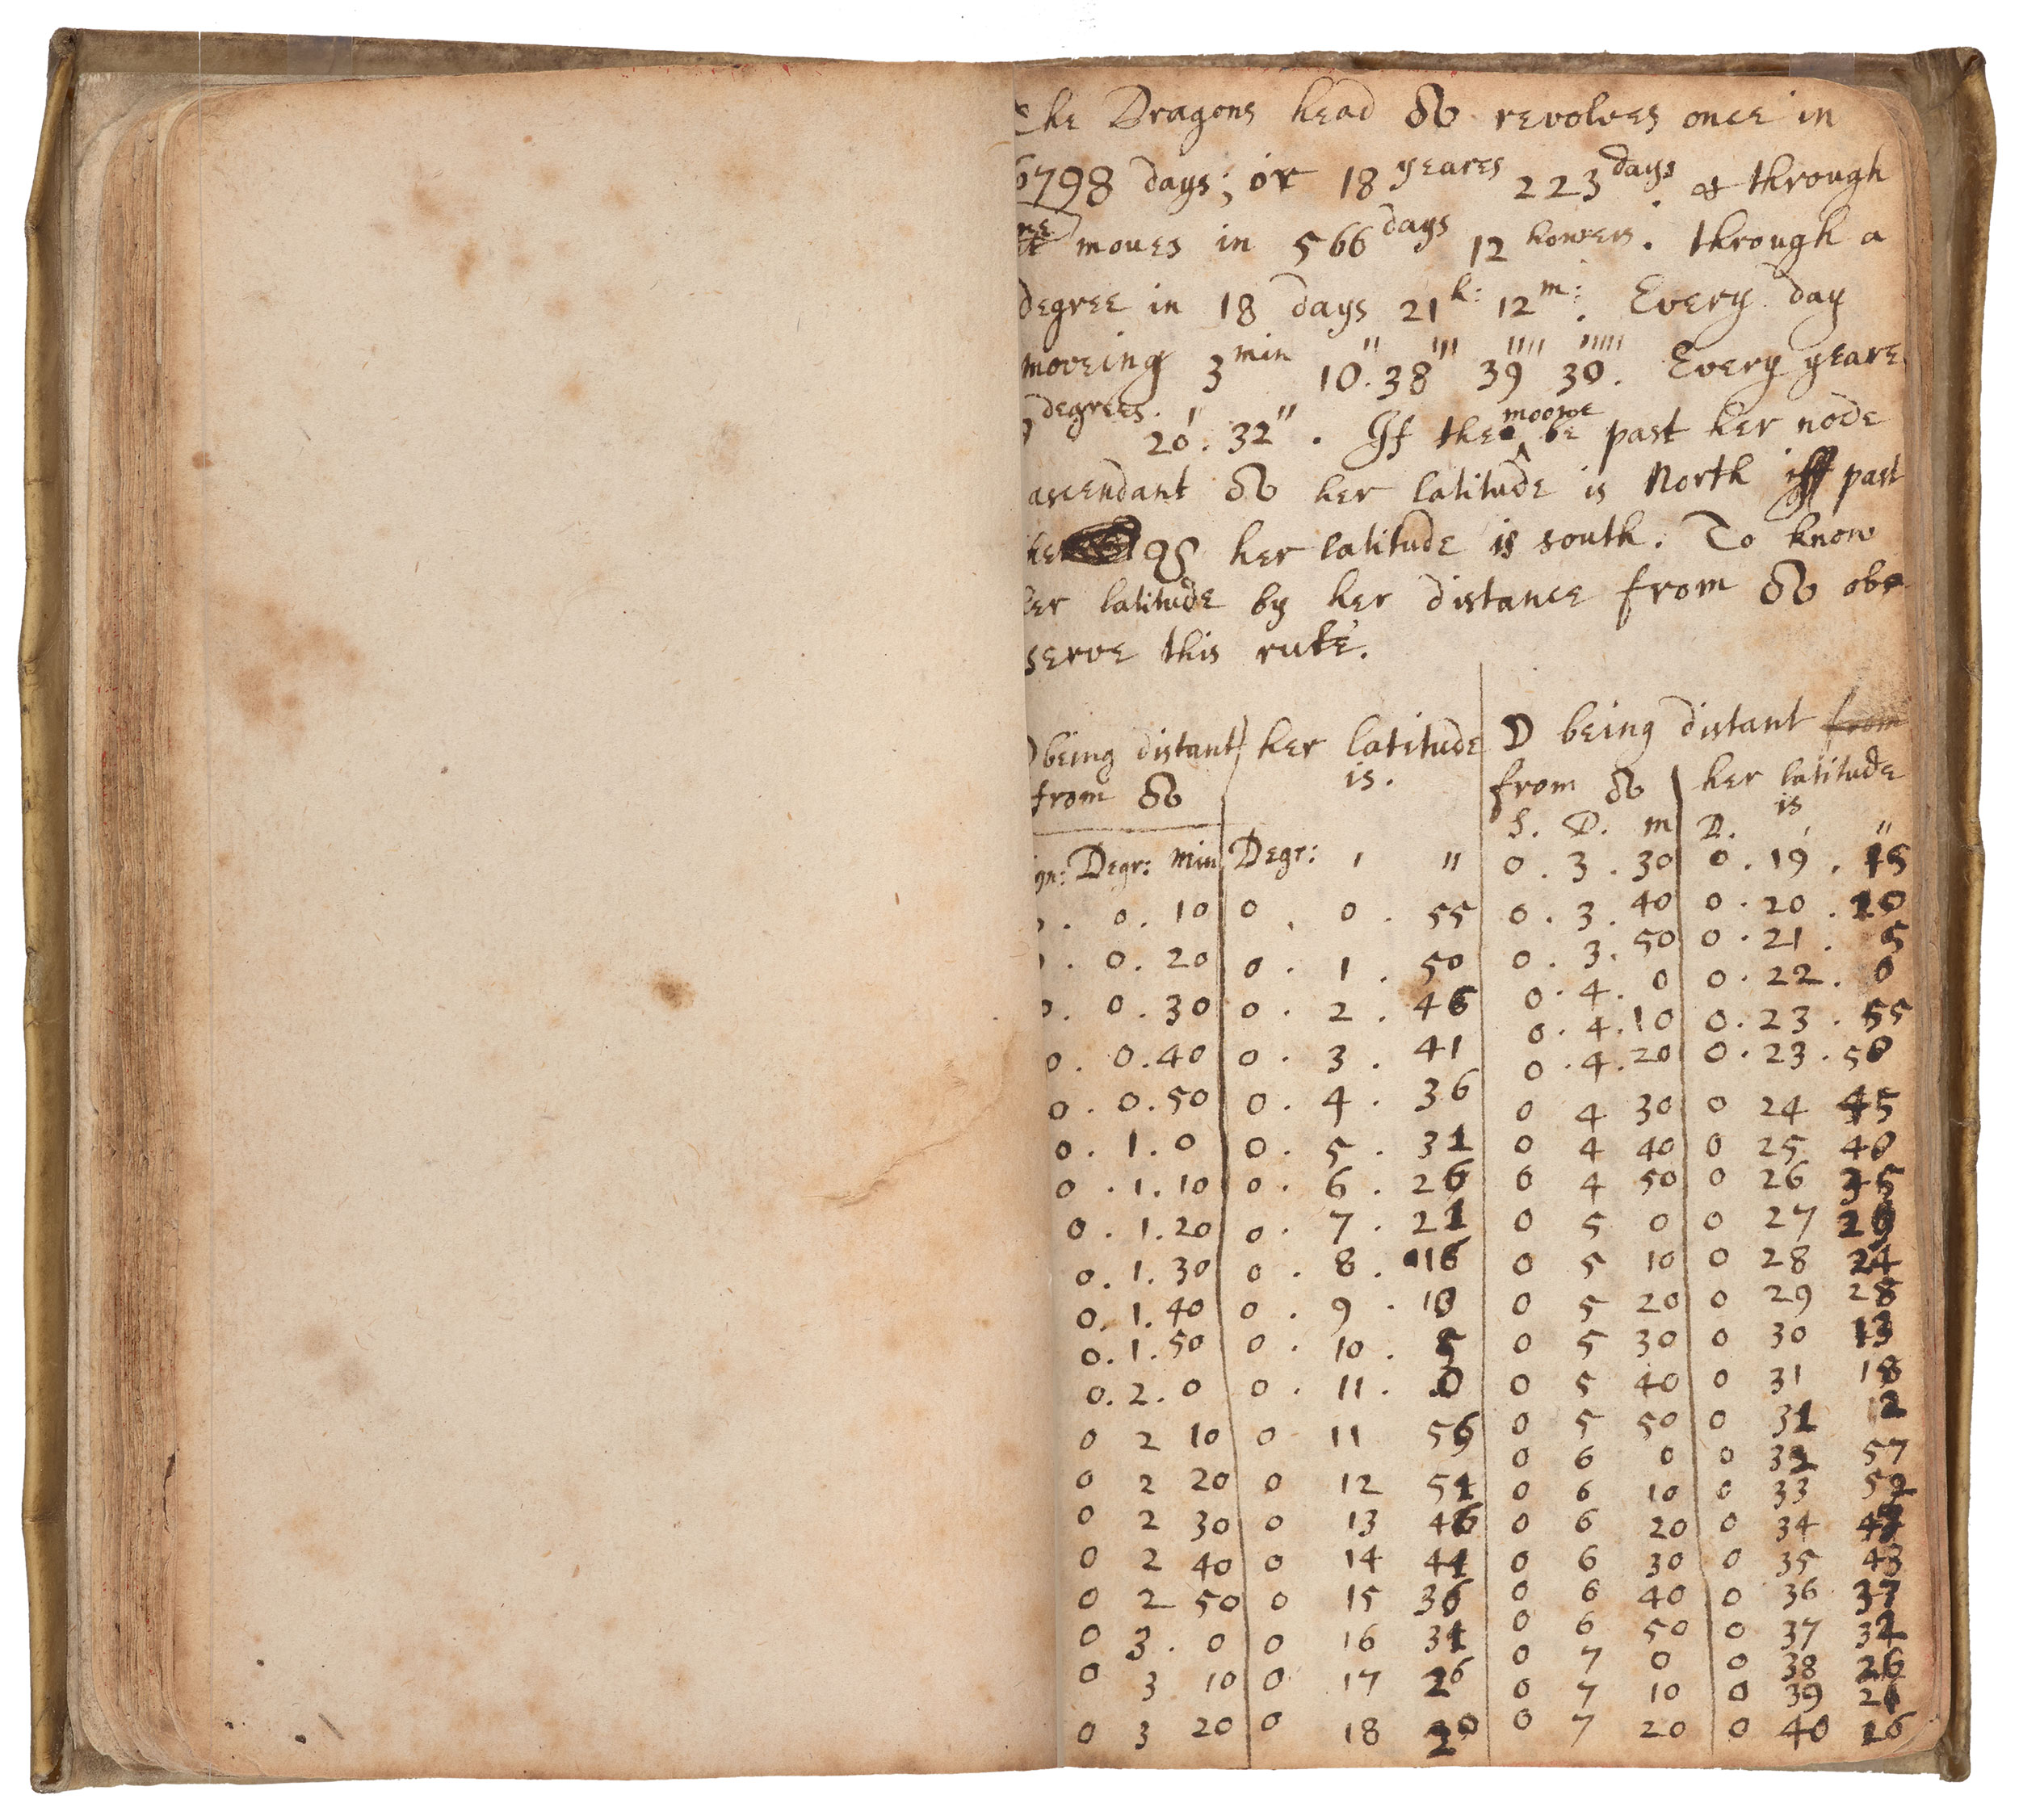 The Dragons head ☊ revolves once in
6798 days; or 18 yeares 223 days. & through
moves in 566 days 12 howers. through a
degree in 18 days 21 h: 12 m: Every day
moveing 3 min 10''. 38''' 39'''' 30'''''. Every yeare
degrees. 20'. 32''. If the moone be past her node
ascendant ☊ her latitude is North iff past
her ☋ her latitude is south. To know
her latitude by her distance from ☊ ob
serve this rule.
☽ being distant her latitude
from ☊ is.
Sign: Degr: Min Degr: ' ''
0. 0. 10 0. 0. 55
0. 0. 20 0. 1. 50
0. 0. 30 0. 2. 46
0. 0. 40 0. 3. 41
0. 0. 50 0. 4. 36
0. 1. 0 0. 5. 31
0. 1. 10 0. 6. 26
0. 1. 20 0. 7. 21
0. 1. 30 0. 8. 16
0. 1. 40 0. 9. 10
0. 1. 50 0. 10. 5
0. 2. 0 0. 11. 0
0 2 10 0 11 56
0 2 20 0 12 51
0 2 30 0 13 46
0 2 40 0 14 41
0 2 50 0 15 36
0 3. 0 0 16 31
0 3 10 0 17 26
0 3 20 0 18 20
☽ being distant from
from ☊ her latitude
is
S. D. m D. ' ''
0. 3. 30 0. 19. 15
0. 3. 40 0. 20. 10
0. 3. 50 0. 21. 5
0. 4. 0 0. 22. 0
0. 4. 10 0. 23. 55
0. 4. 20 0. 23. 50
0 4 30 0 24 45
0 4 40 0 25 40
0 4 50 0 26 35
0 5 0 0 27 29
0 5 10 0 28 24
0 5 20 0 29 28
0 5 30 0 30 13
0 5 40 0 31 18
0 5 50 0 31 12
0 6 0 0 32 57
0 6 10 0 33 52
0 6 20 0 34 47
0 6 30 0 35 43
0 6 40 0 36 37
0 6 50 0 37 32
0 7 0 0 38 26
0 7 10 0 39 21
0 7 20 0 40 16